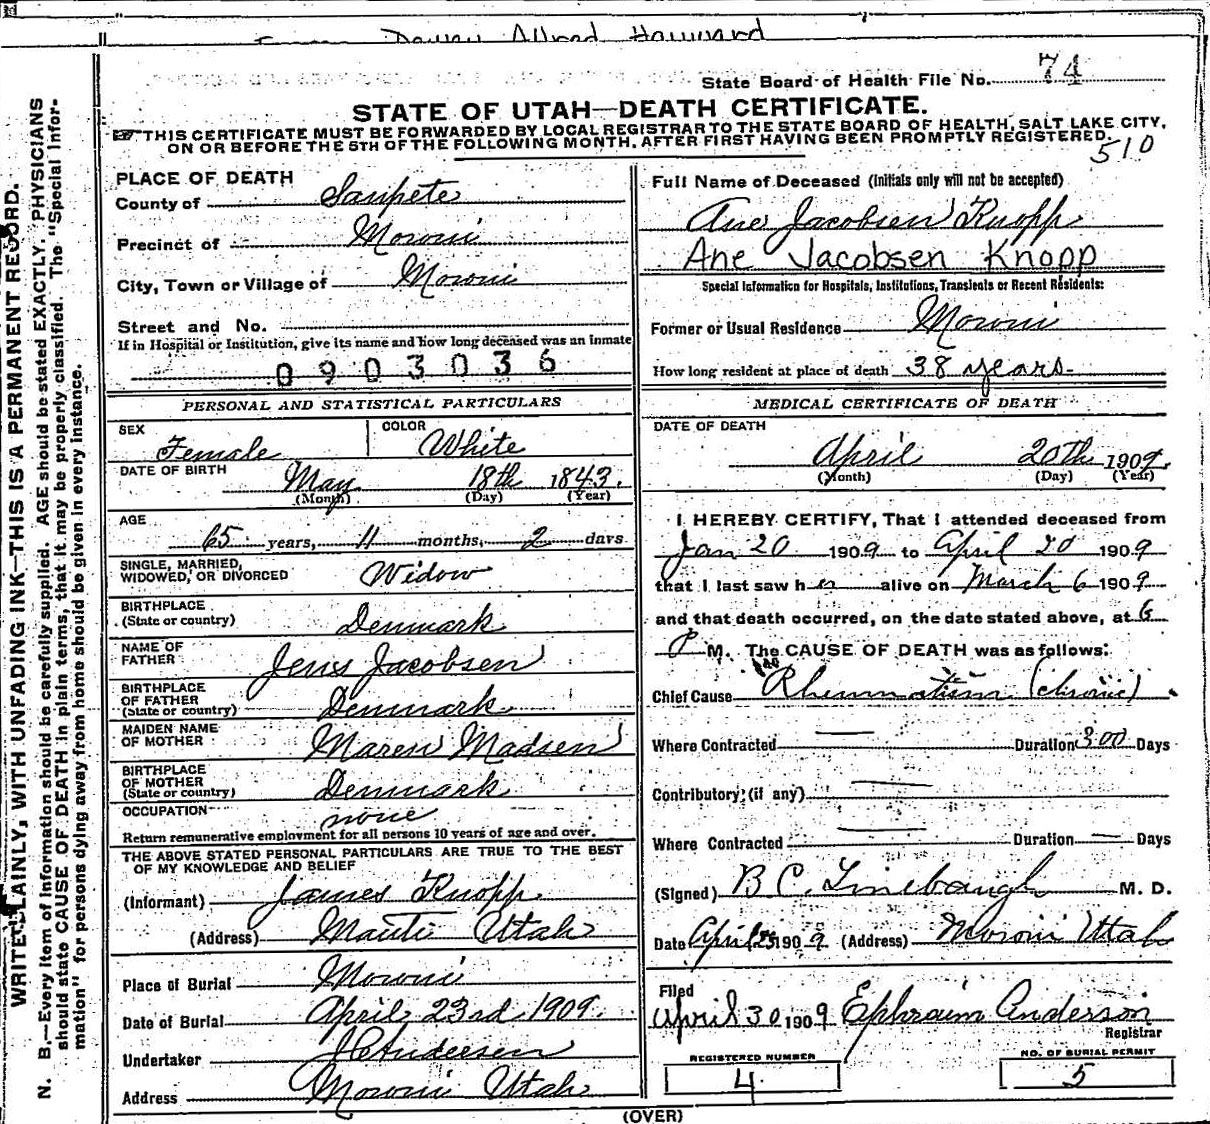 Dewey Allred Hayward
State Board of Health File No. 74
STATE OF UTAH—DEATH CERTIFICATE.
THIS CERTIFICATE MUST BE FORWARDED BY LOCAL REGISTRAR TO THE STATE BOARD OF HEALTH, SALT LAKE CITY,
ON OR BEFORE THE 5TH OF THE FOLLOWING MONTH, AFTER FIRST HAVING BEEN PROMPTLY REGISTERED.
510
WRITE PLAINLY, WITH UNFADING INK—THIS IS A PERMANENT RECORD.
N. B.—Every item of information should be carefully supplied. AGE should be stated EXACTLY. PHYSICIANS
should state CAUSE OF DEATH in plain terms, that it may be properly classified. The "Special Infor-
mation" for persons dying away from home should be given in every instance.
PLACE OF DEATH
County of Sanpete
Precinct of Moroni
City, Town or Village of Moroni
Street and No.
If in Hospital or Institution, give its name and how long deceased was an inmate
0903036
PERSONAL AND STATISTICAL PARTICULARS
SEX Female COLOR White
DATE OF BIRTH May 18th 1843.
(Month) (Day) (Year)
AGE 65 years, 11 months, 2 days
SINGLE, MARRIED,
WIDOWED, OR DIVORCED Widow
BIRTHPLACE
(State or country) Denmark
NAME OF
FATHER Jens Jacobsen
BIRTHPLACE
OF FATHER
(State or country) Denmark
MAIDEN NAME
OF MOTHER Maren Madsen
BIRTHPLACE
OF MOTHER
(State or country) Denmark
OCCUPATION none
Return remunerative employment for all persons 10 years of age and over.
THE ABOVE STATED PERSONAL PARTICULARS ARE TRUE TO THE BEST
OF MY KNOWLEDGE AND BELIEF
(Informant) James Knopp
(Address) Manti Utah
Place of Burial Moroni
Date of Burial April 23rd 1909.
Undertaker J C Andersen
Address Moroni Utah
Full Name of Deceased (Initials only will not be accepted)
Ane Jacobsen Knopp
Ane Jacobsen Knopp
Special Information for Hospitals, Institutions, Transients or Recent Residents:
Former or Usual Residence Moroni
How long resident at place of death 38 years
MEDICAL CERTIFICATE OF DEATH
DATE OF DEATH
April 20th 1909.
(Month) (Day) (Year)
I HEREBY CERTIFY, That I attended deceased from
Jan 20 1909 to April 20 1909
that I last saw her alive on March 6 1909
and that death occurred, on the date stated above, at 6
P M. The CAUSE OF DEATH was as follows:
Chief Cause Rheumatism (chronic)
Where Contracted — Duration 300 Days
Contributory (if any) —
Where Contracted — Duration — Days
(Signed) B. C. Linebaugh M. D.
Date April 1909 (Address) Moroni Utah
Filed
April 30 1909 Ephraim Anderson
Registrar
REGISTERED NUMBER
4
NO. OF BURIAL PERMIT
5
(OVER)